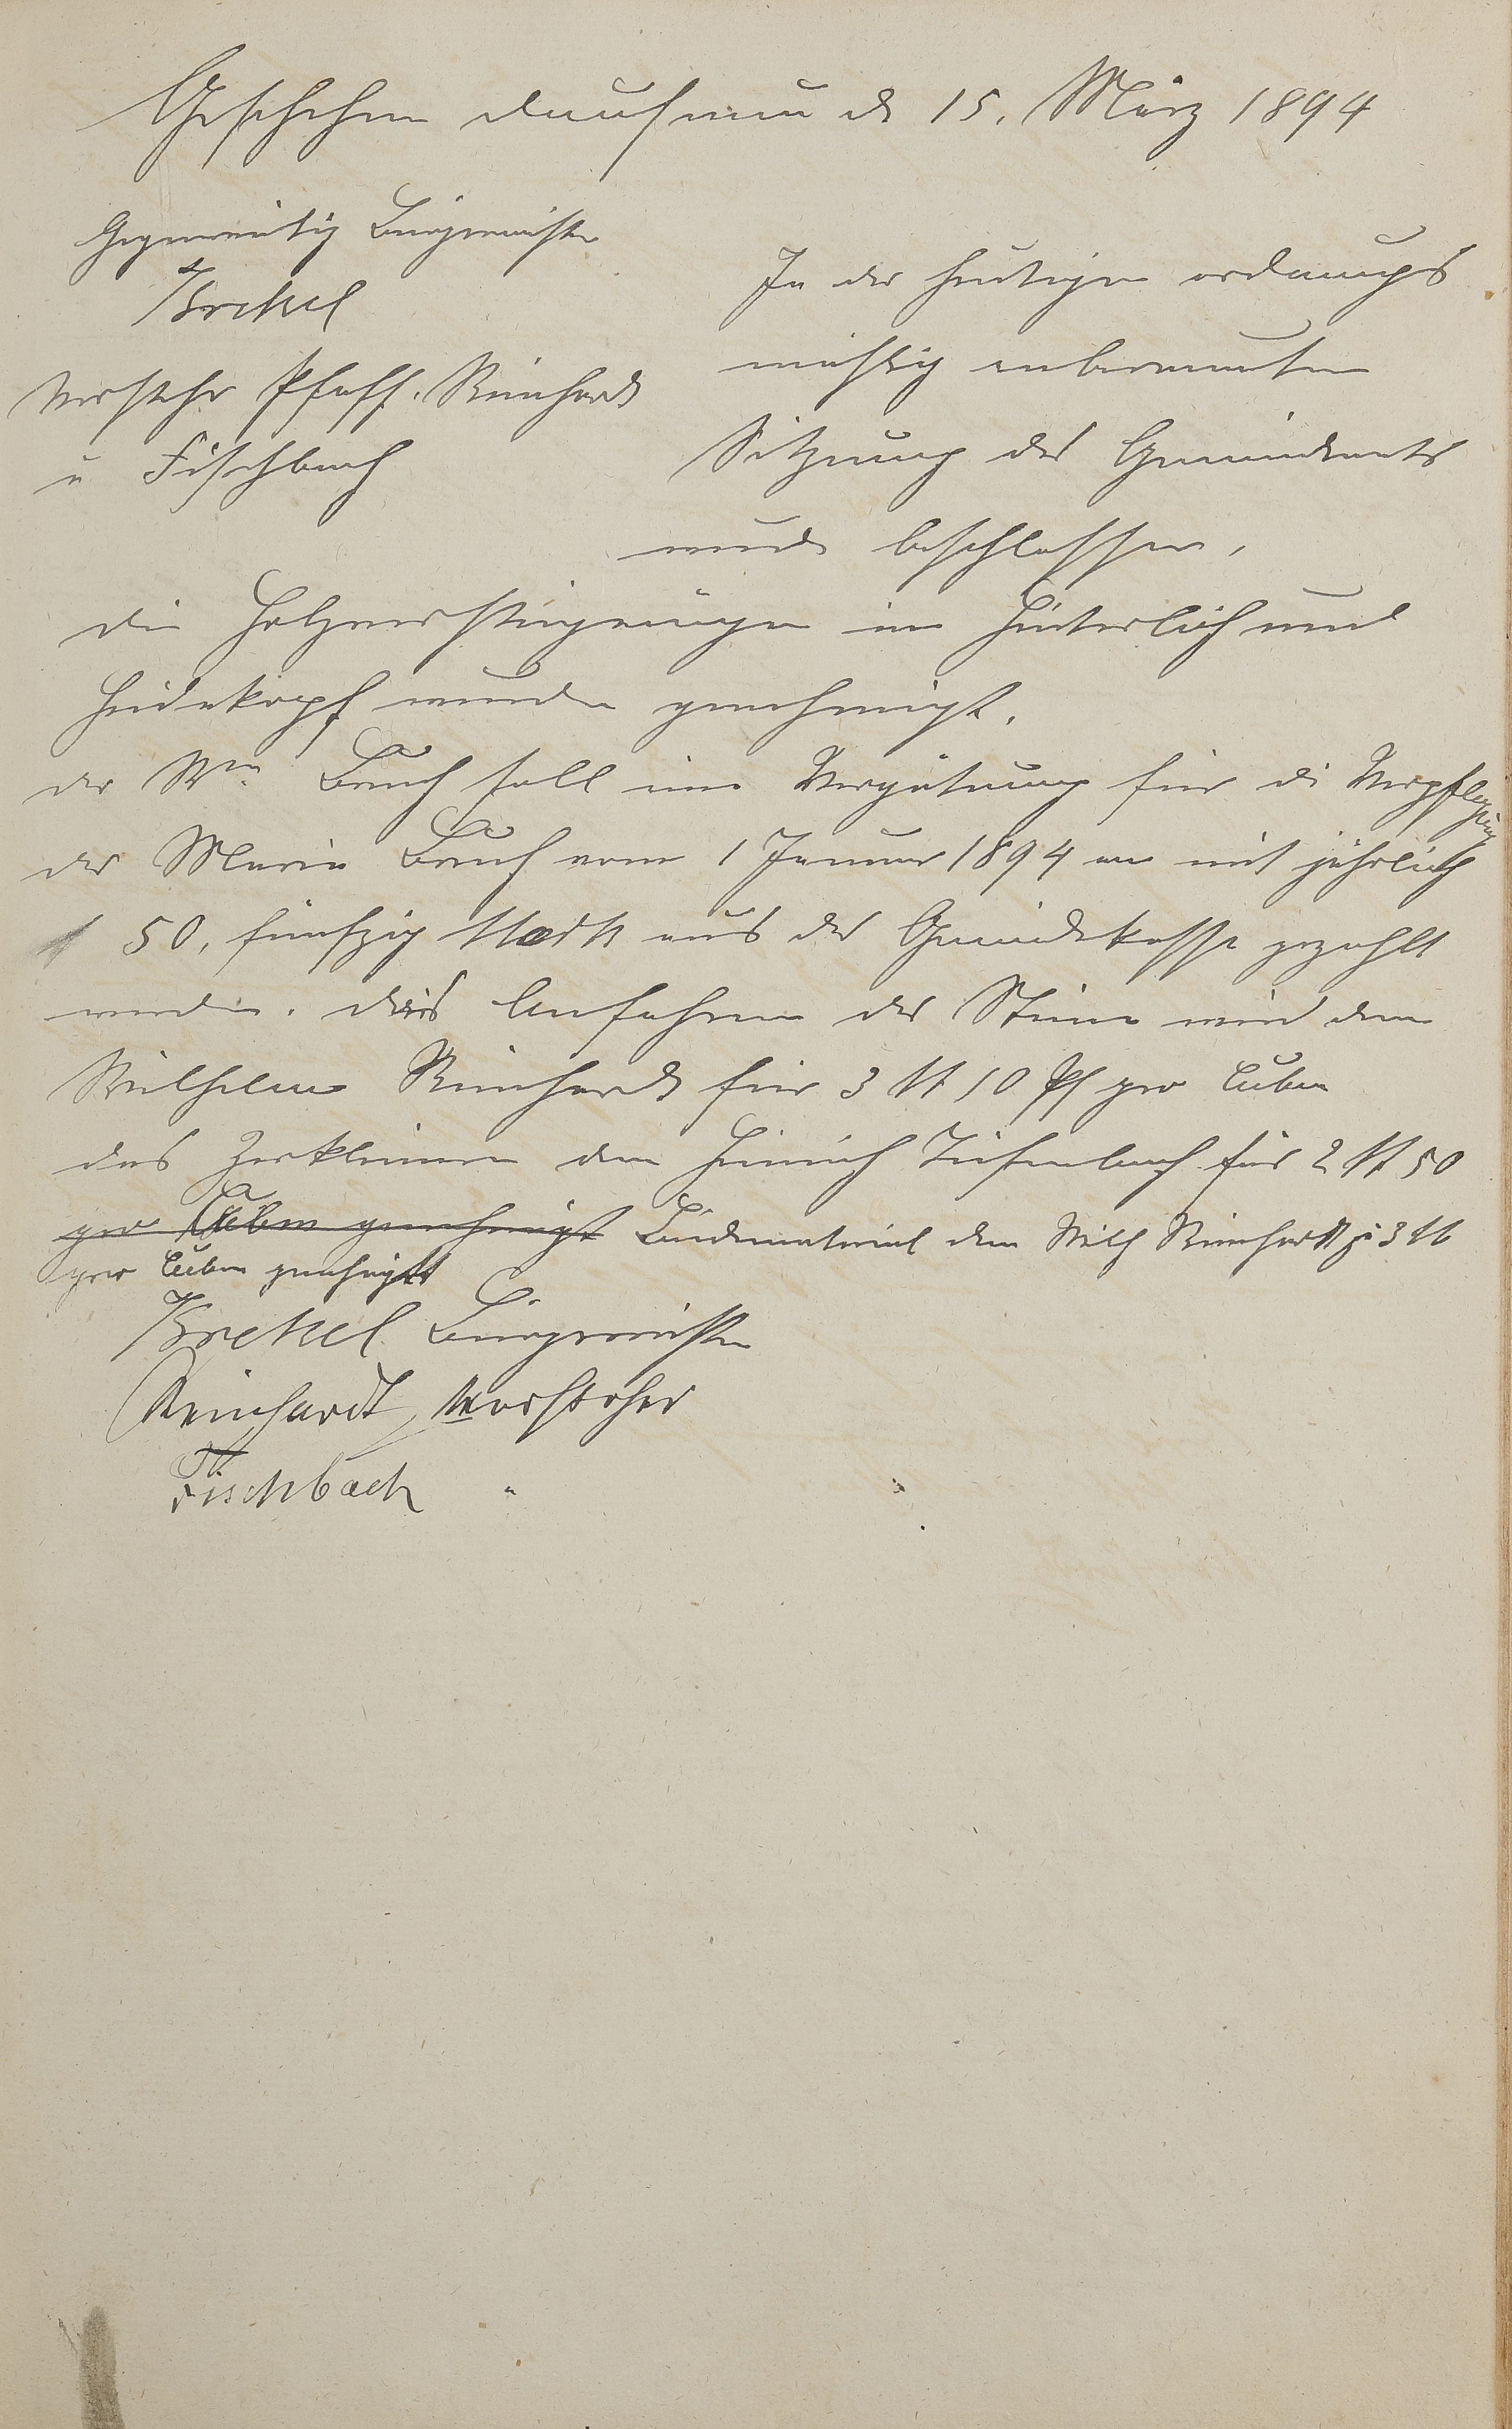 Geschehen Dausenau d 15. März 1894
Gegenwärtig Bürgermeister
Krekel
Vorsteher Pfaff. Reinhardt
u Fischbach
In der heutigen ordnungs
mäßig anberaumten
Sitzung des Gemeinderats
wurde beschlossen,
die Holzversteigerungen im Hinterlich und
Heidekopf wurden genehmigt.
der Wwe Bruch soll eine Vergütung für di Verpflegung
der Maria Bruch vom 1 Januar 1894 an mit jährlich
50, fünfzig Mark aus der Gemeindekasse gezahlt
werden. das Anfahren der Steine wird dem
Wilhelm Reinhardt für 3 M 10 Pf pro Cubm
das Zerkleinern dem Heinrich Tiefenbach für 2 M 50
pro Cubm genehmigt Bindematerial dem Wilh Reinhardt zu 3 M
pro Cubm genehmigt
Krekel Bürgermeister
Reinhardt, Vorsteher
Fischbach "